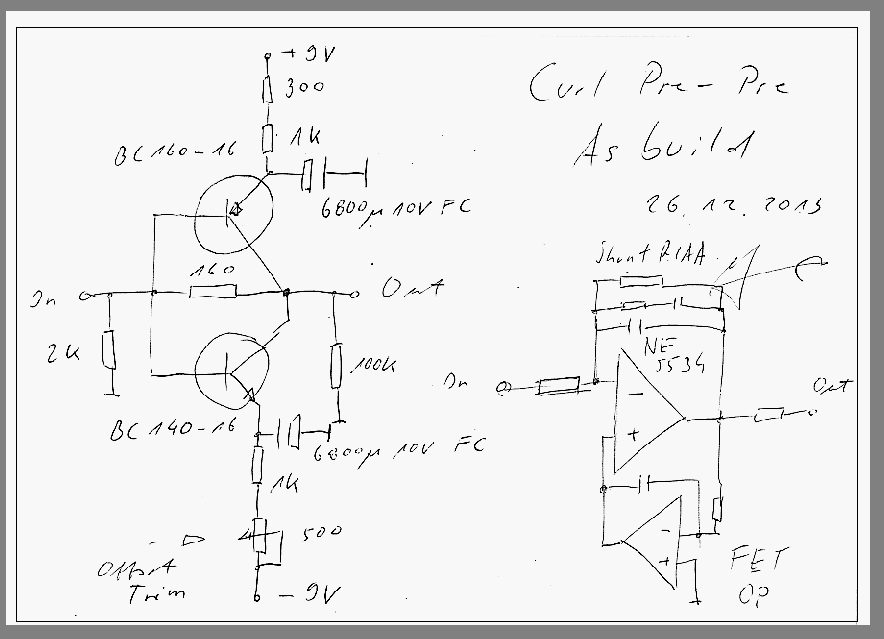 +9V
300
1K
BC160-16
6800µ 10V FC
160
In
Out
2K
100K
BC140-16
6800µ 10V FC
1K
500
Offset
Trim
-9V
Curl Pre-Pre
As build
26.12.2013
Shunt RIAA
NE
5534
In
Out
-
+
-
+
FET
OP